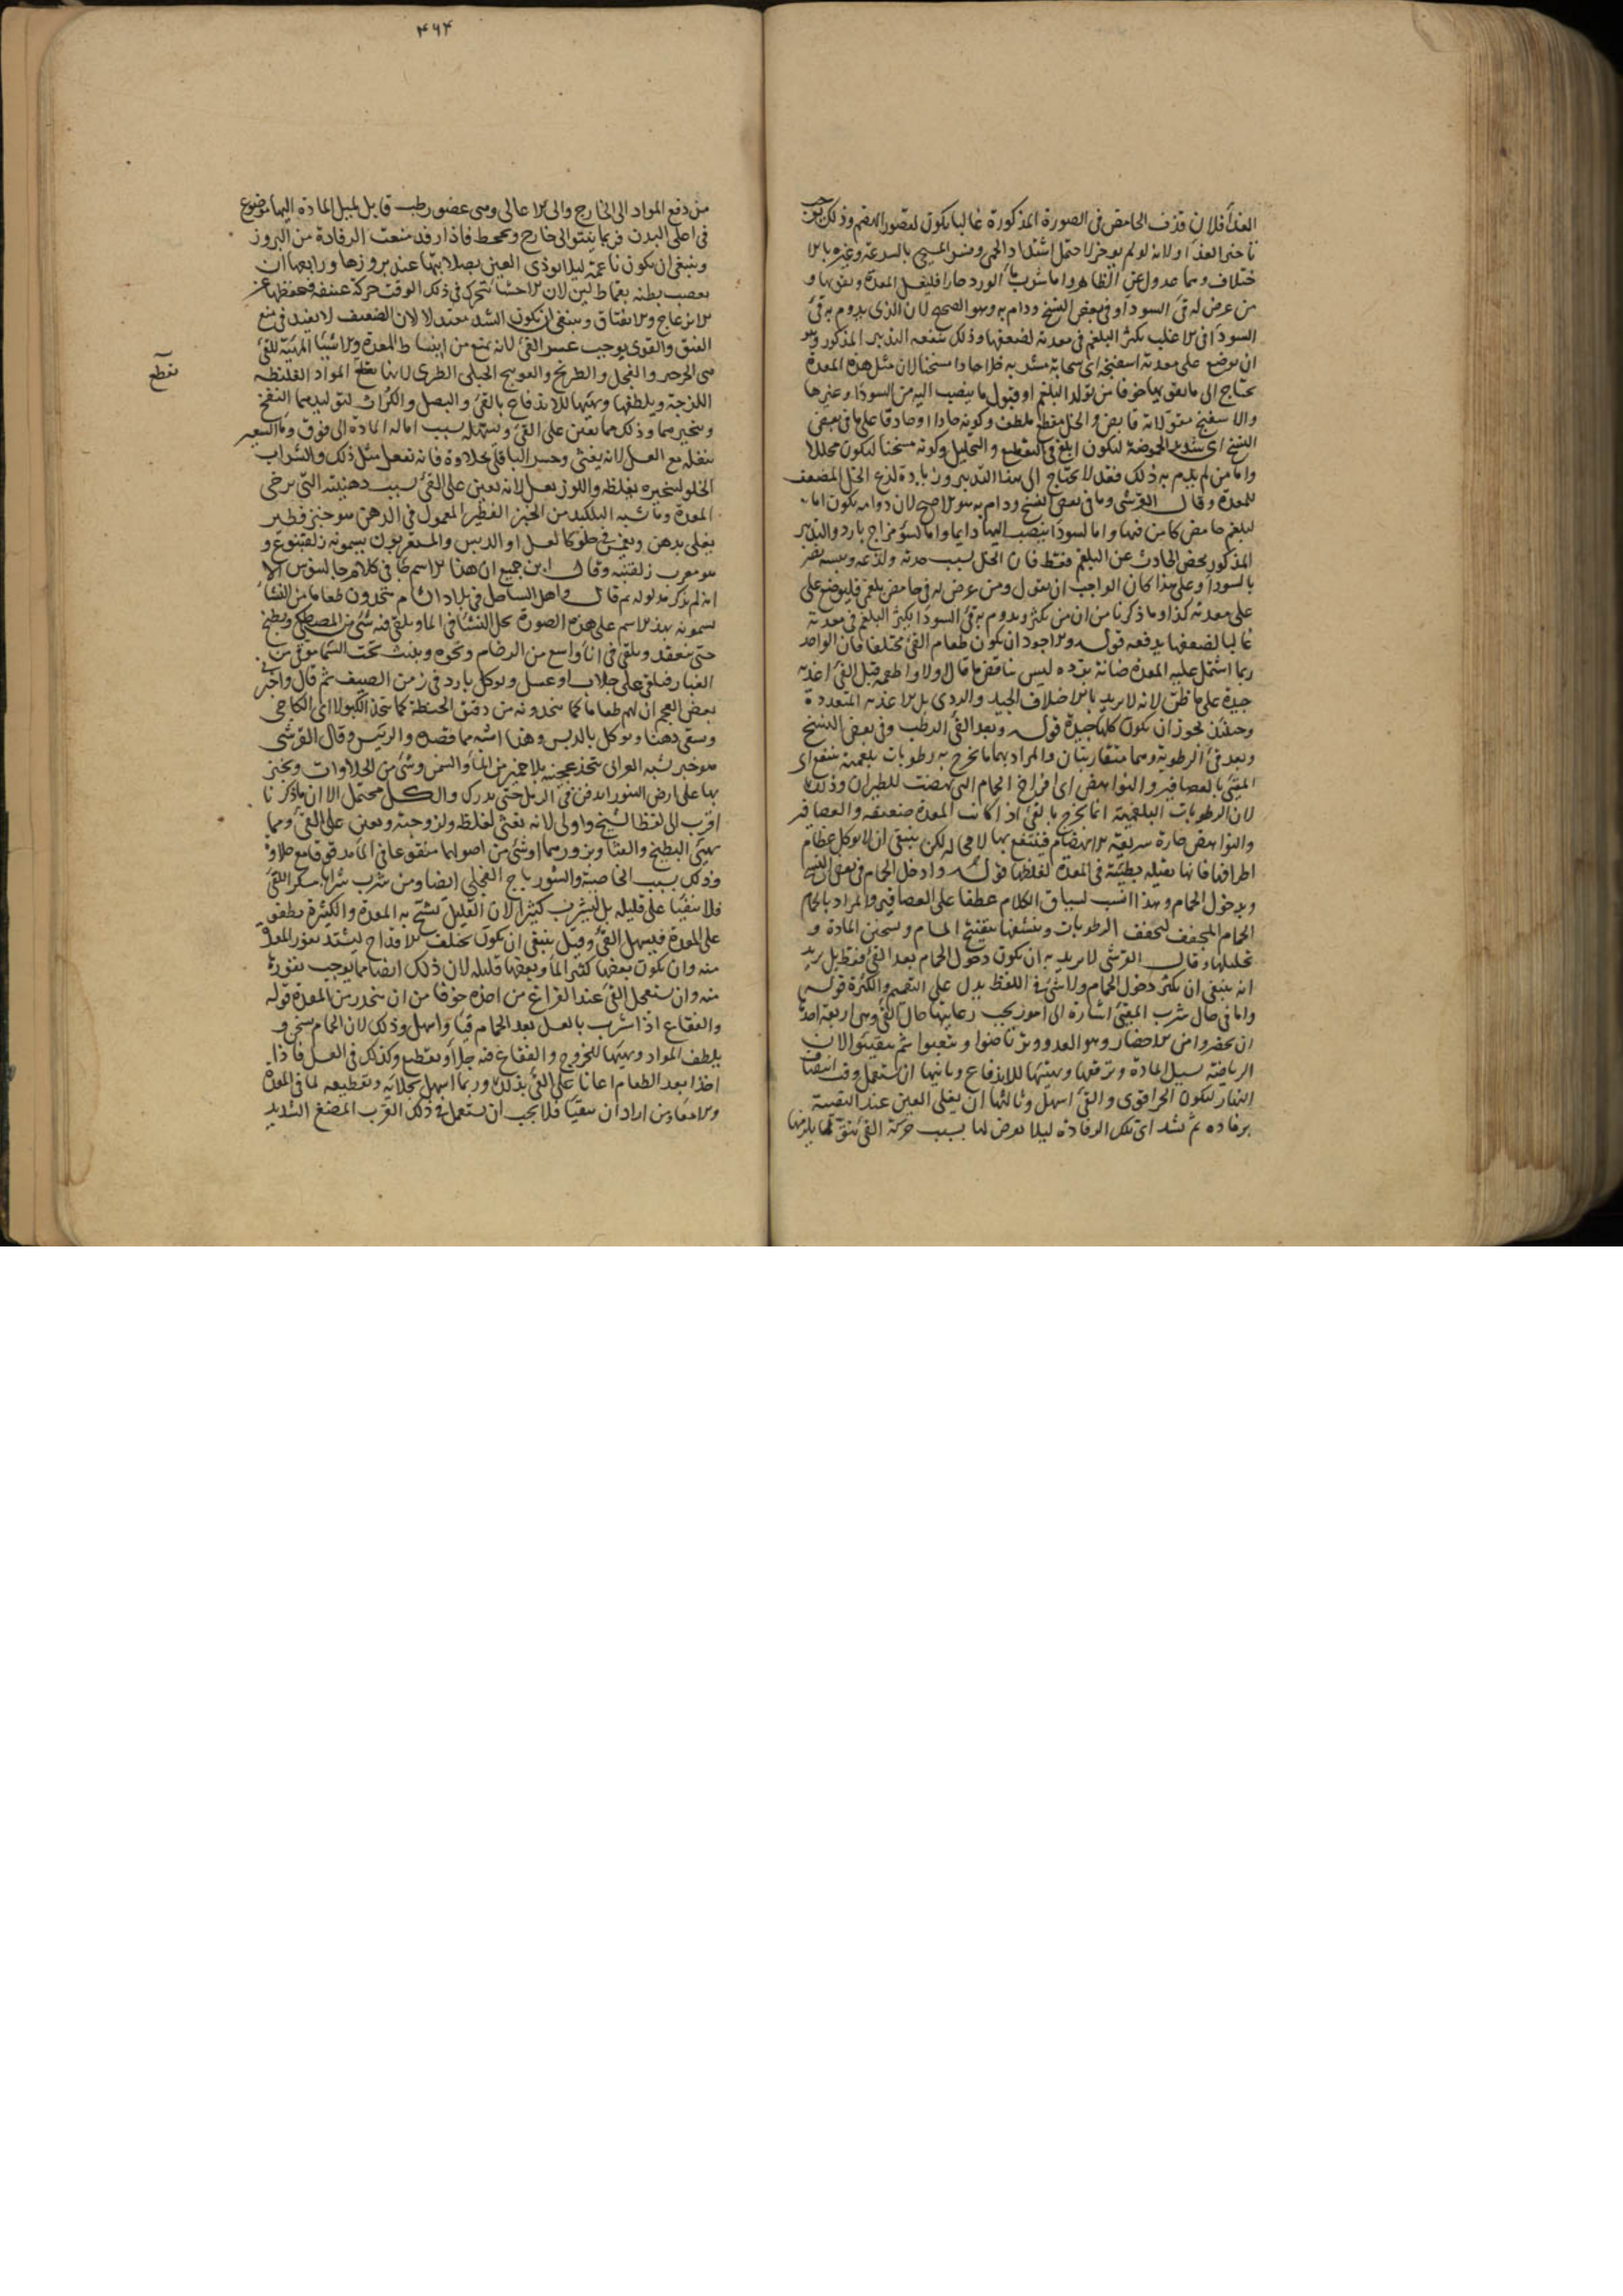 الغذا فلان قذف الحامض فى الصورة المذكورة غالبا يكون لقصور الهضم وذلك
تاخير الغذا ولانه لو لم يوخر لاحتمل اشتداد الحمى
ختلاف وهما عدول عن الظاهر واما شرب ما الورد حارا فليغسل المعدة ويقويها و
من عرض له قئ السودا وفى بعض النسخ ودام به وهو الصحيح لان الذى يدوم به قئ
السودا فى الاغلب يكثر البلغم فى معدته لضعفها وذلك ينفعه التدبير المذكور وهو
ان يوضع على معدته اسفنجة اى سحابة مشربه خلا حادا مسخنا لان مثل هذه المعدة
تحتاج الى ما يقويها خوفا من تولد البلغم او قبول ما ينصب اليه من السودا وغيرها
والاسفنج مقو لانه قابض والخل مقطع ملطف وكونه حادا او حاذقا على ما فى بعض
النسخ اى شديد الحموضة ليكون ابلغ فى التقطيع والتحليل وكونه مسخنا ليكون محللا
واما من لم يدم به ذلك فقد لا يحتاج الى هذا التدبير وزيادة لذع الخل المضعف
للمعدة وقال القرشى وما فى بعض النسخ ودام به هو الاصح لان دوامه يكون اما
لبلغم حامض كامن فيها واما لسودا ينصب اليها دايما واما لسؤ مزاج بارد والتدبير
المذكور يخص الحادث عن البلغم فقط فان الخل بسبب حدته ولذعه ويبسه يضر
بالسودا وعلى هذا كان الواجب ان يقول ومن عرض له قئ حامض بلغمى فليوضع على
على معدته كذا وما ذكرنا من ان من يكثر ويدوم به قئ السودا يكثر البلغم فى معدته
غالبا لضعفها يدفعه قوله والاجود ان يكون طعام القئ مختلفا فان الواحد
ربما اشتمل عليه المعدة ضانة برده ليس يناقض ما قال اولا واطعمه قبل القئ اغذية
جيدة على ما ظن لانه لا يريد بالاختلاف الجيد والردى بل الاغذية المتعددة
وحينئذ يجوز ان يكون كلها جيدة قوله وبعد القئ الرطب وفى بعض النسخ
وبعد قئ الرطوبة وهما متقاربتان والمراد بهما ما يخرج به رطوبات بلغمية ينتفع اى
المتقئ بالعصافير والنواهض اى افراخ الحمام التى نهضت للطيران وذلك
لان الرطوبات البلغمية انما يخرج بالقئ اذا كانت المعدة ضعيفة والعصافير
والنواهض حارة سريعة الانهضام فينتفع بها لا محالة لكن ينبغى ان لا يوكل عظام
اطرافها فانها ثقيلة بطيئة فى المعدة لغلظها قوله وادخل الحمام فى بعض النسخ
وبدخول الحمام وهذا انسب لسياق الكلام عطفا على العصافير والمراد بالحمام
الحمام المجفف ليجفف الرطوبات وينشفها بتفتيح المسام وتسخين المادة و
تحليلها وقال القرشى لا يريد به ان يكون دخول الحمام بعد القئ فقط بل يريد
انه ينبغى ان يكثر دخول الحمام ولا شئ فى اللفظ يدل على التعميم والكثرة قوله
واما فى حال شرب المقيئ اشارة الى امور يجب رعايتها حال القئ وهى اربعة احدها
ان يحضروا من الاحضار وهو العدو ويرتاضوا ويتعبوا ثم يتقيئوا لان
الرياضة تسيل المادة وترققها وتهيئها للاندفاع وثانيها ان يستعمل وقت انتصاف
النهار ليكون الحر اقوى والقئ اسهل وثالثها ان يغطى العين عند التقيئة
برفادة ثم تشد اى تلك الرفادة ليلا يعرض لها بسبب حركة القئ
۴۶۴
من دفع المواد الى الخارج والى الاعالى وهى عضو رطب قابل لميل المادة اليها موضوع
فى اعلى البدن فربما ينتو الى خارج ويجحظ فاذا رفدت منعت الرفادة من البروز
وينبغى ان يكون ناعمة ليلا يوذى العين بصلابتها عند بروزها ورابعها ان
يعصب بطنه بقماط لين لان الاحشا تتحرك فى ذلك الوقت حركة عنيفة فتحفظها عن
الانزعاج والانفتاق وينبغى ان يكون الشد معتدلا لان الضعيف لا يفيد فى منع
الفتق والقوى يوجب عسر القئ لانه يمنع من انبساط المعدة والاشيا المهيئة للقئ
هى الجرجير والفجل والطريخ والفوينج الجبلى الطرى لانها تقطع المواد الغليظة
تقطع
اللزجة ويلطفها ويهيئها للاندفاع بالقئ والبصل والكراث لتوليدهما النفخ
وتبخيرهما وذلك مما يعين على القئ وتسهله بسبب امالة المادة الى فوق وما الشعير
بثفله مع العسل لانه يغثى وحسو الباقلى بحلاوة فانه تفعل مثل ذلك والشراب
الحلو لتبخيره بغلظه واللوز بعسل لانه يعين على القئ بسبب دهنيته التى يرخى
المعدة وما يشبه البلكيد من الخبز الفطير المعمول فى الدهن هو خبز فطير
يغلى بدهن ويغمس فى حلو كالعسل او الدبس والمغربيون يسمونه
هو معرب وقال ابن جميع ان هذا الاسم جا فى كلام جالينوس الا
انه لم يذكر مدلوله ثم قال واهل الساحل فى بلاد الشام يتخذون طعاما من النشا
يسمونه بهذا الاسم على هذه الصورة يحل النشا فى الما ويلقى فيه شئ من المصطكى ويطبخ
حتى ينعقد ويلقى فى انا واسع من الرخام ونحوه ويبيت تحت السما موقى من
الغبار فيلقى على جلاب او عسل ويوكل بارد فى زمن الصيف ثم قال واخبرنى
بعض العجم ان لهم طعاما كما يتخذونه من دقيق الحنطة كما يتخذ الكبولا اى الكاجى
ويسقى دهنا ويوكل بالدبس وهذا اشبه مما قصده الرئيس وقال القرشى
هو خبز يشبه الفرانى يتخذ عجينه بلا خمير من الما والسمن وشئ من الحلاوات ويخبز
بها على ارض التنور او يدفن فى الرمل حتى يدرك والكل محتمل الا ان ما ذكرنا
اقرب الى لفظ الشيخ واولى لانه يغثى لغلظه ولزوجته ويعين على القئ ومما
يهيئ البطيخ والقثا وبزورهما اوشئ من اصولهما منقوعا فى الما مدقوقا مع حلاوة
وذلك بسبب الخاصية والشورباج الفجلى ايضا ومن شرب شرابا يسكر للقئ
فلا يتقيا على قليله بل ليشرب كثيرا لان القليل يشتمل به المعدة والكثيرة يطفو
على المعدة فيسهل القئ وقيل ينبغى ان يكون مختلف الاقداح ليشتد نفور المعدة
منه وان يكون بعضها كثير الما وبعضها قليله لان ذلك ايضا مما يوجب نفورها
منه وان يستعمل القئ عند الفراغ من اخذه خوفا من ان ينحدر من المعدة قوله
والفقاع اذا شرب بالعسل بعد الحمام قيا واسهل وذلك لان الحمام يسخن و
يلطف المواد ويهيئها للخروج والفقاع فيه جلا وتقطيع وكذلك فى العسل فاذا
اخذ بعد الطعام اعانا على القئ بذلك وربما اسهل بجلائه وتقطيعه لما فى المعدة
والامعا ومن اراد ان يتقيا فلا يجب ان يستعمل فى ذلك القرب المضغ الشديد